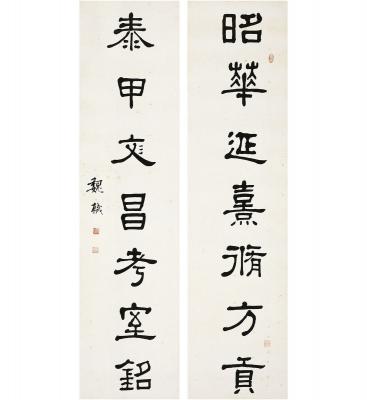 昭華延熹脩方貢
泰甲文昌考室銘
魏戫